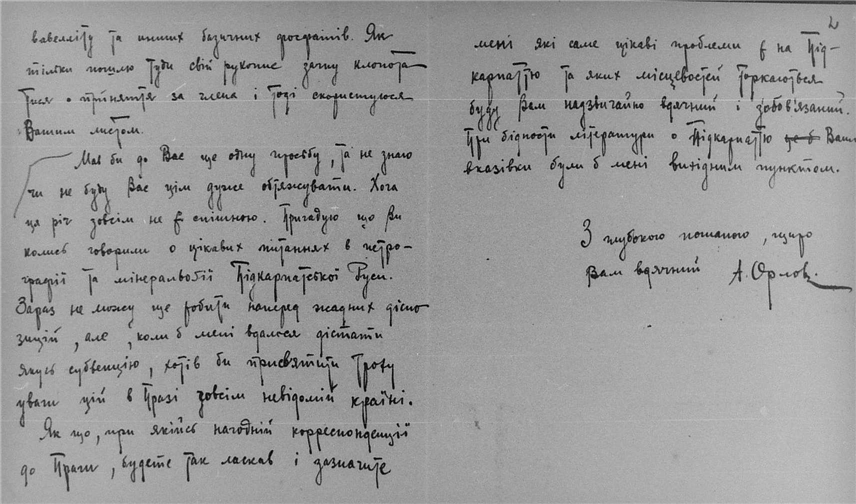 вавелліту та инших базичних фосфатів. Як
тільки пошлю туди свій рукопис зачну клопота-
тися о приняття за члена і тоді скористуюся
Вашим листом.
Мав би до Вас ще одну просьбу, та не знаю
чи не буду Вас цім дуже обтяжувати. Хоча
ця річ зовсім не є спішною. Пригадую що Ви
колись говорили о цікавих питаннях в петро-
графії та мінералогії Підкарпатської Руси.
Зараз не можу ще робити наперед жадних діспо
зицій, але, коли б мені вдалося дістати
якусь субвенцію, хотів би присвятити троху
уваги цій в Празі зовсім невідомій країні.
Як що, при якійсь нагодній корреспонденції
до Праги, будете так ласкаві і зазначите
2
мені які саме цікаві проблеми є на Під-
карпаттю та яких місцевостей торкаються
буду Вам надзвичайно вдячний і зобов'язаний.
При бідности літератури о Підкарпаттю Ваші
вказівки були б мені вихідним пунктом.
З глубокою пошаною, щиро
Вам вдячний А. Орлов.